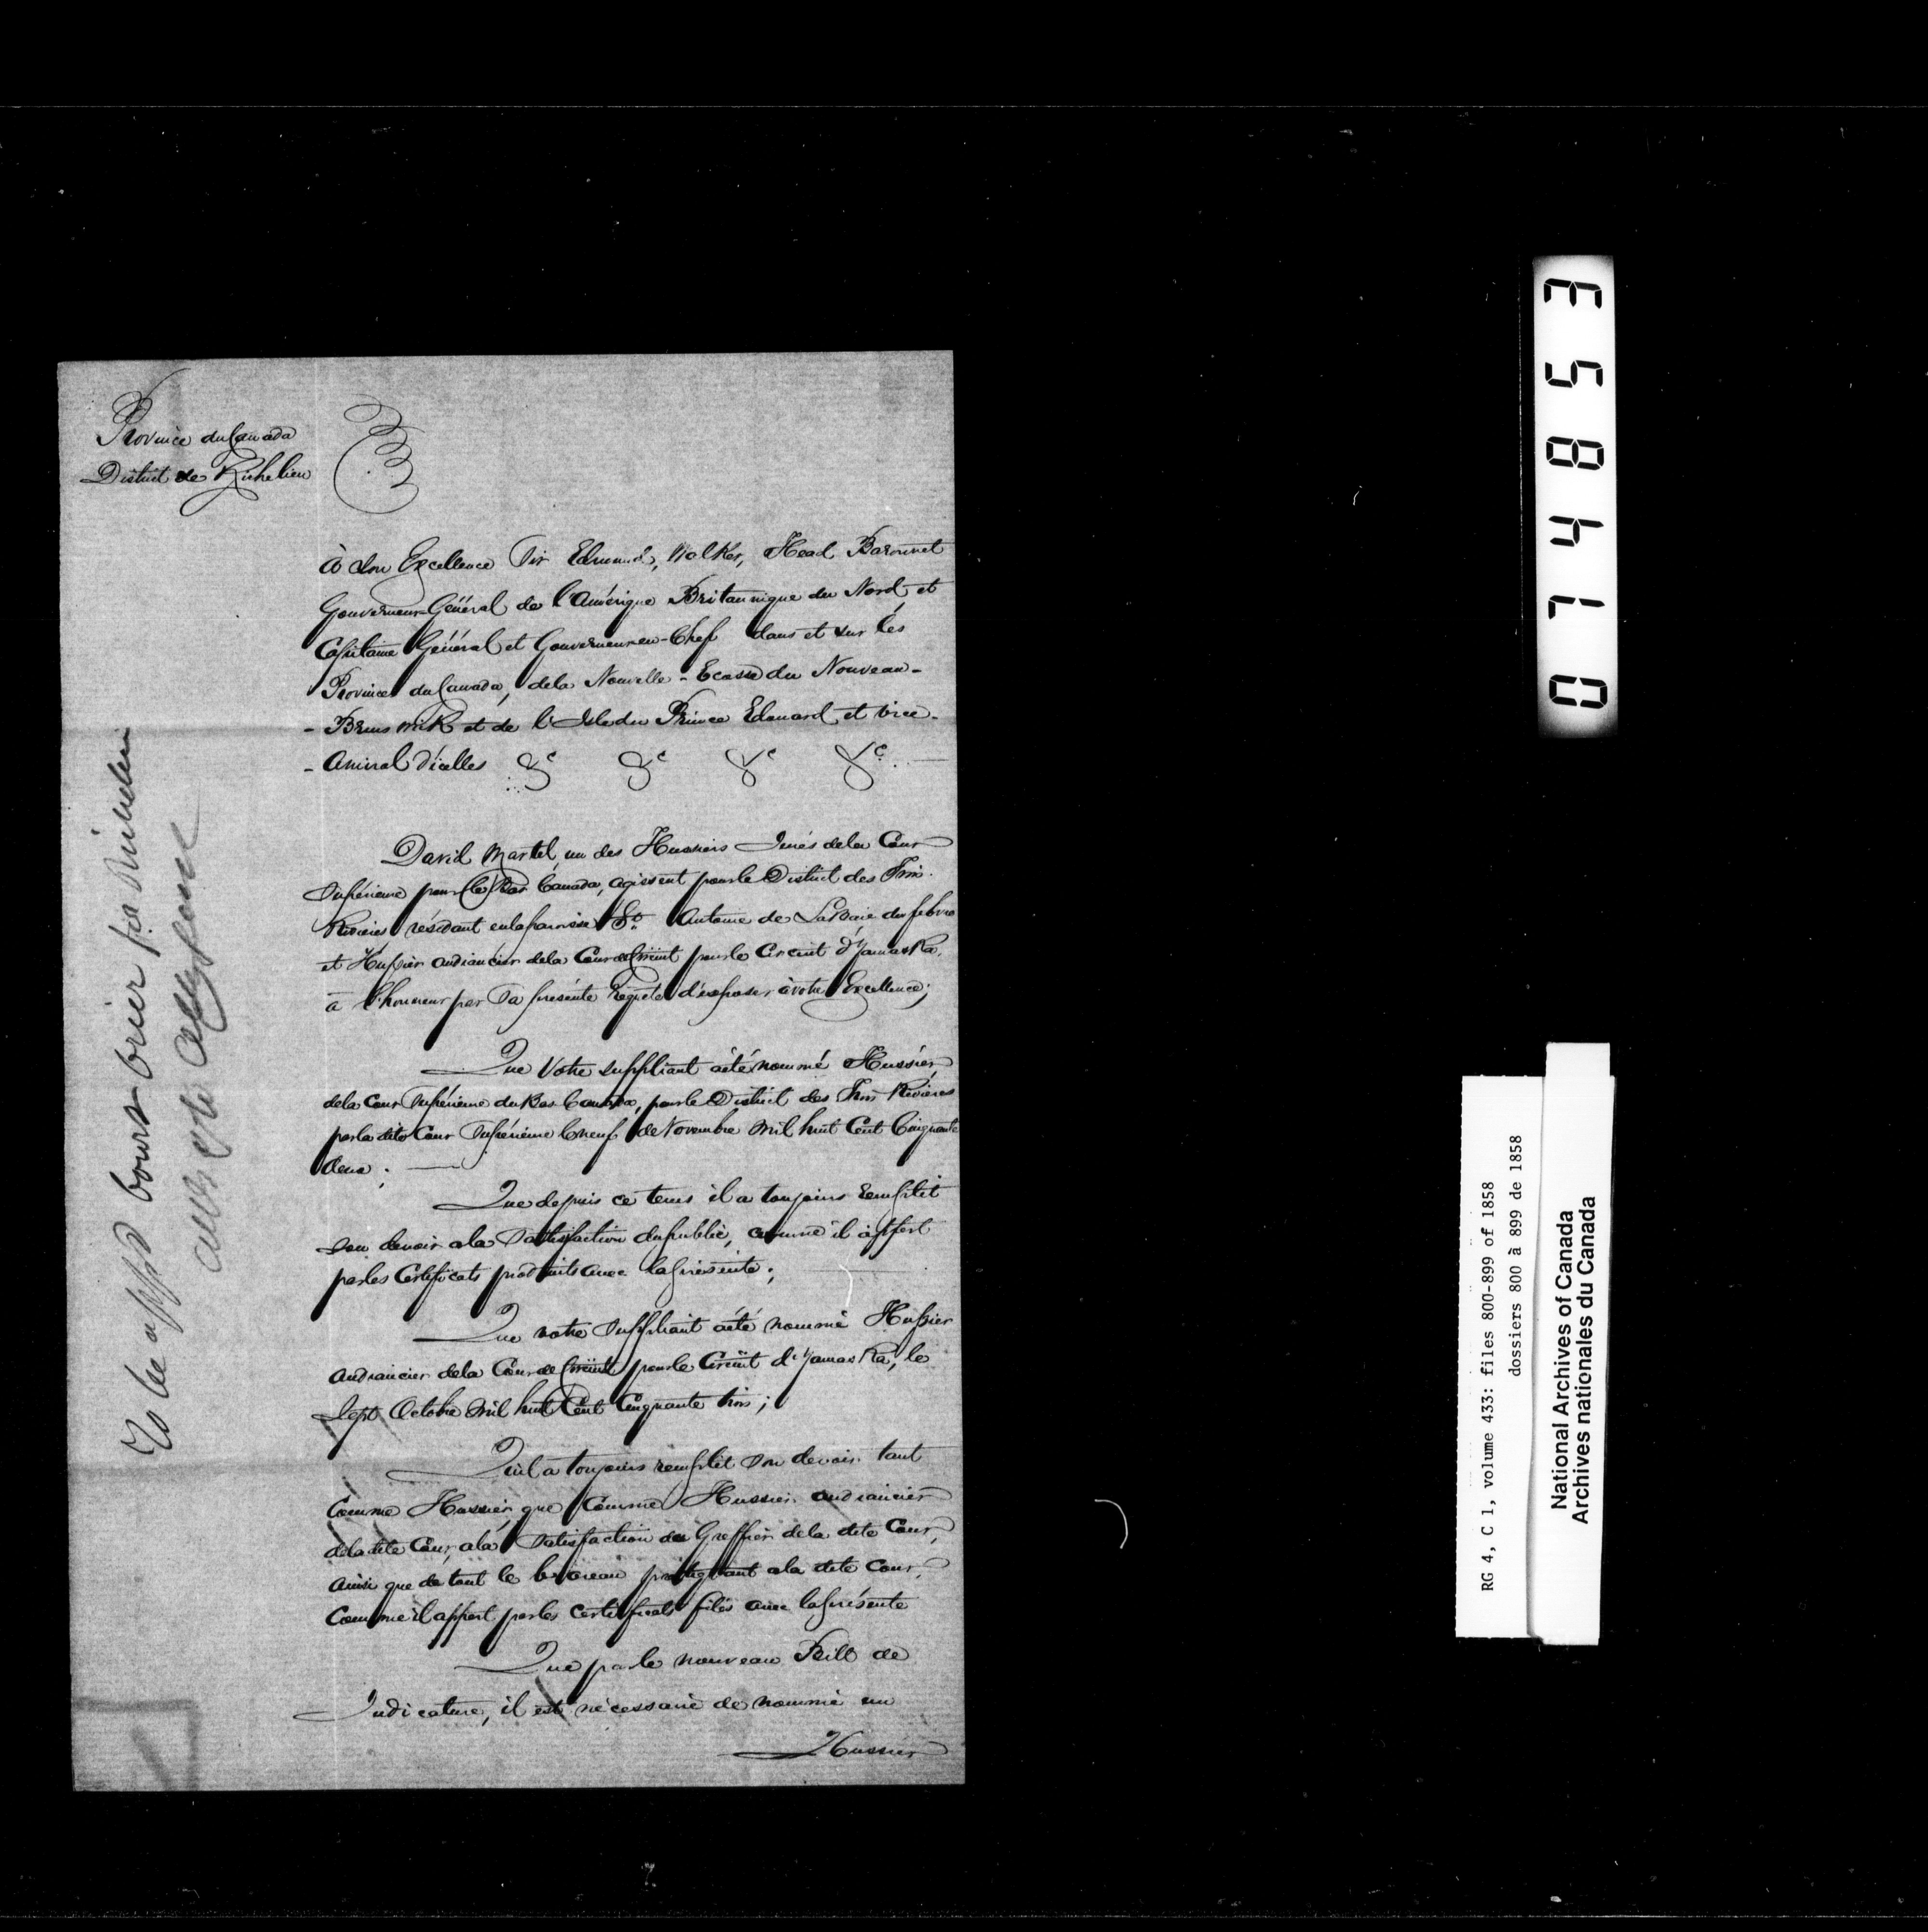 Province du Canada
District de Richelieu
à Son Excellence Sir Edmund, Walker, Head Baronnet
Gouverneur-Général de l'Amérique Britannique du Nord, et
Capitaine Général et Gouverneur en-Chef dans et sur les
Provinces du Canada, de la Nouvelle-Ecosse du Nouveau-
-Brunswick et de l'Isle du Prince Edouard et vice-
-Amiral d'icelles &c &c &c &c
David Martel, un des Hussiers Jurés de la Cour
Supérieure pour le Bas Canada, agissent pour le District des Trois-
Rivieres résidant en la paroisse St. Antoine de LaBaie du febvre
et Hussier audiancier de la Cour de Circuit pour le Circuit d'Yamaska,
à l'honneur par Sa présente Requête d'exposer à votre Excellence;
Que Votre suppliant a été nommé Hussier
de la Cour Supérieure du Bas Canada, pour le District des Trois Rivieres
par la dite Cour Supérieure le neuf de Novembre Mil huit Cent Cinquante
deux;
Que depuis ce tems il a toujours remplit
son devoir a la Satisfaction du public, comme il appert
par les Certificats produits avec la présente;
Que votre Suppliant a été nommé Hussier
Audiancier de la Cour de Circuit pour le Circuit d'Yamaska, le
Sept Octobre Mil huit Cent Cinquante trois;
Qu'il a toujours remplit Son devoir tant
Comme Hussier, que Comme Hussier audiancier
de la dite Cour, a la Satisfaction du Greffier de la dite Cour,
Ainsi que de tout le bareau pratiquant a la dite Cour,
Comme il appert par les certificats filés avec la présente
Que par le nouveau Bill de
Judicature, il est nécessaire de nommé un
Hussier
To be appd Court Crier for Richelieu
074853
RG 4, C 1, volume 433: files 800-899 of 1858
dossiers 800 à 899 de 1858
National Archives of Canada
Archives nationales du Canada